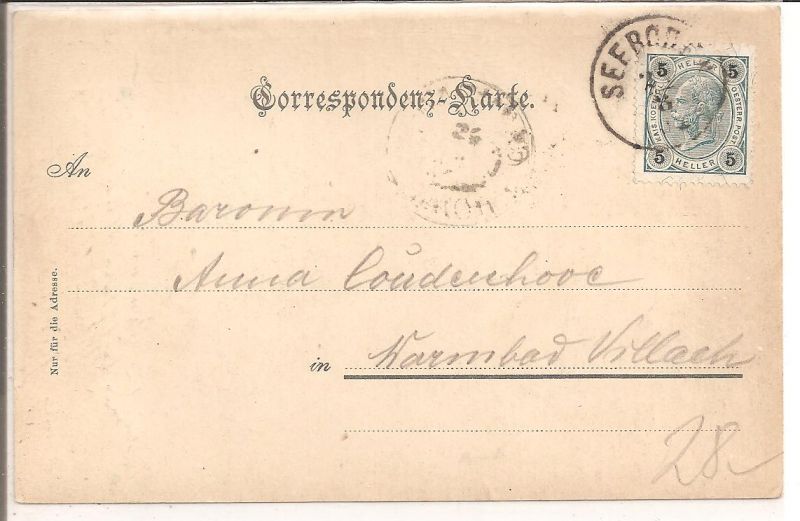 Correspondenz-Karte.
5 HELLER 5
KAIS. KÖN. OESTERR. POST.
5 HELLER 5
An
Baronin
Anna Coudenhove
in Warmbad Villach
Nur für die Adresse.
28